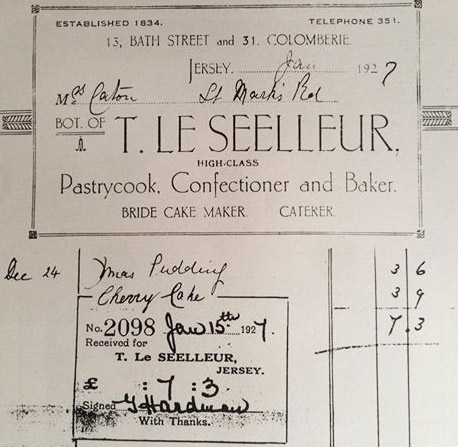 ESTABLISHED 1834. TELEPHONE 351.
13, BATH STREET and 31, COLOMBERIE
JERSEY. Jan 1927
Mrs Caton St Mark's Rd
BOT. OF T. LE SEELLEUR,
HIGH-CLASS
Pastrycook, Confectioner and Baker.
BRIDE CAKE MAKER. CATERER.
Dec 24 Xmas Pudding 3 6
Cherry Cake 3 9
7.3
No. 2098 Jan 15th 1927.
Received for
T. Le SEELLEUR,
JERSEY.
£ : 7 : 3.
Signed Hardman
With Thanks.